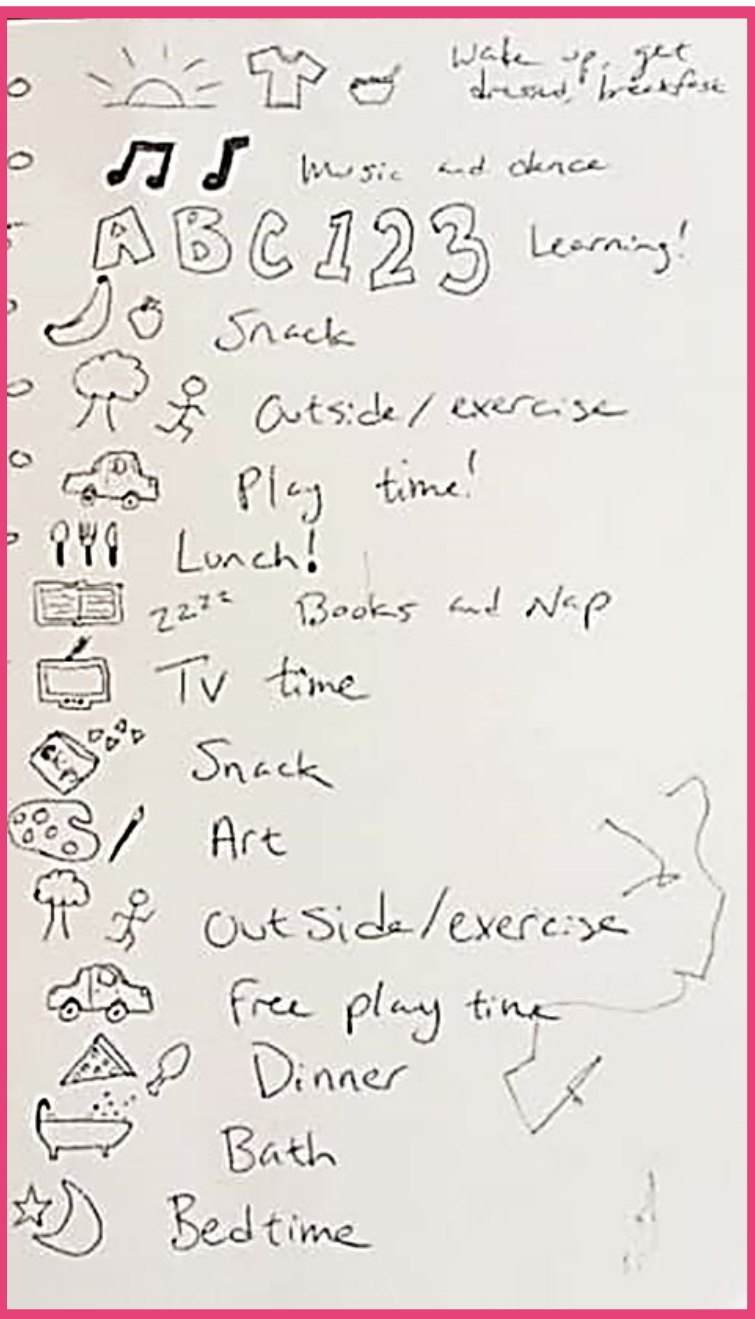 Wake up, get
dressed, breakfast
Music and dance
ABC123 Learning!
Snack
Outside/exercise
Play time!
Lunch!
zzzz Books and Nap
TV time
Snack
Art
Outside/exercise
Free play time
Dinner
Bath
Bedtime